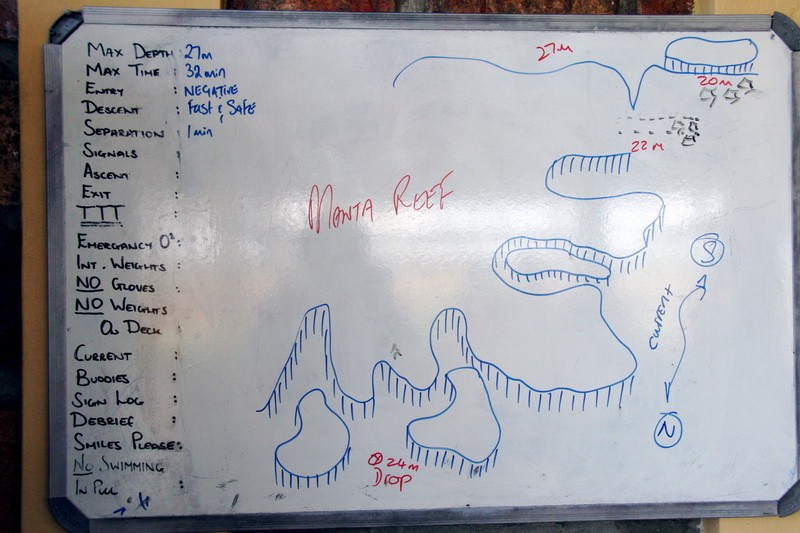 MAX DEPTH : 27m
MAX TIME : 32min
ENTRY : NEGATIVE
DESCENT : Fast & SAFE
SEPARATION : 1min
SIGNALS :
ASCENT :
EXIT :
TTT :
EMERGANCY O² :
INT. WEIGHTS :
NO GLOVES :
NO WEIGHTS
On DECK :
CURRENT :
BUDDIES :
SIGN LOG :
DEBRIEF :
SMILES PLEASE :
NO SWIMMING
IN :
27m
20m
22m
MANTA REEF
S
CURRENT
N
⊗ 24m
DROP